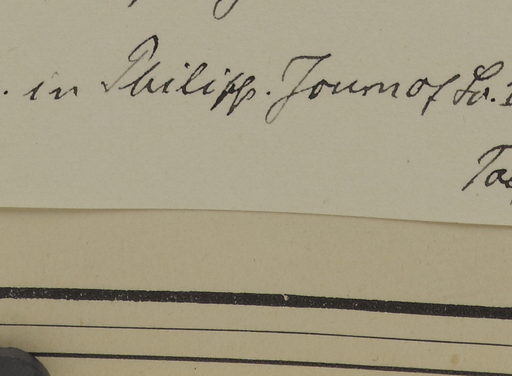 . in Philipp. Journ of Sc.